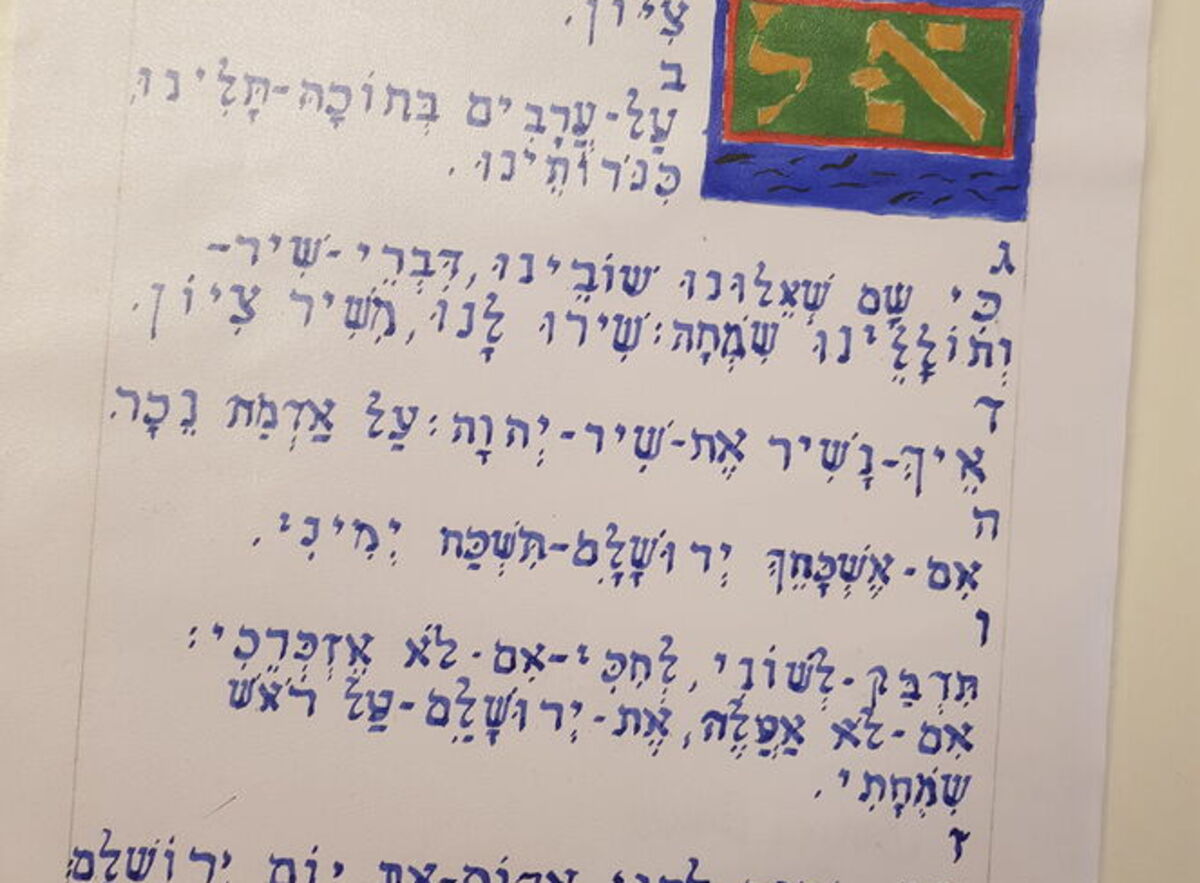 צִיּוֹן.
על
ב
עַל-עֲרָבִים בְּתוֹכָהּ-תָּלִינוּ,
כִּנֹּרוֹתֵינוּ.
ג
כִּי שָׁם שְׁאֵלוּנוּ שׁוֹבֵינוּ, דִּבְרֵי-שִׁיר-
וְתוֹלָלֵינוּ שִׂמְחָה: שִׁירוּ לָנוּ, מִשִּׁיר צִיּוֹן.
ד
אֵיךְ-נָשִׁיר אֶת-שִׁיר-יְהוָה: עַל אַדְמַת נֵכָר.
ה
אִם-אֶשְׁכָּחֵךְ יְרוּשָׁלִָם-תִּשְׁכַּח יְמִינִי.
ו
תִּדְבַּק-לְשׁוֹנִי, לְחִכִּי-אִם-לֹא אֶזְכְּרֵכִי:
אִם-לֹא אַעֲלֶה, אֶת-יְרוּשָׁלִַם-עַל רֹאשׁ
שִׂמְחָתִי.
ז
יוֹם יְרוּשׁלם: